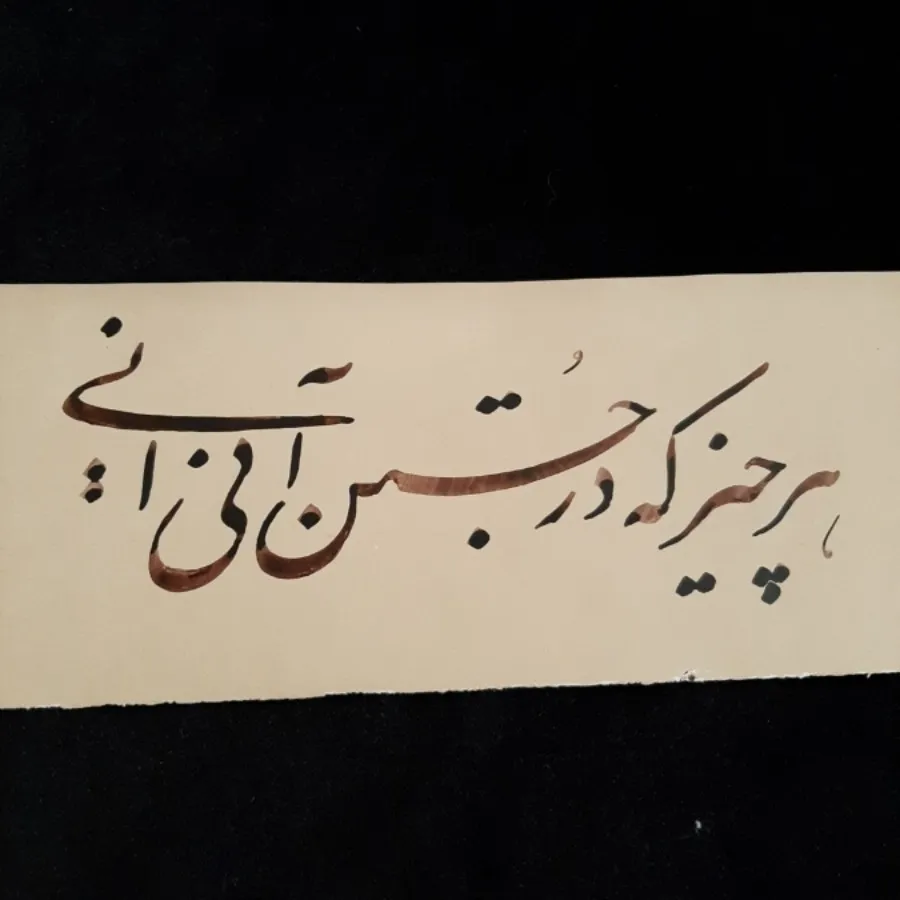 هر چیز که در جُستن آنی آنی